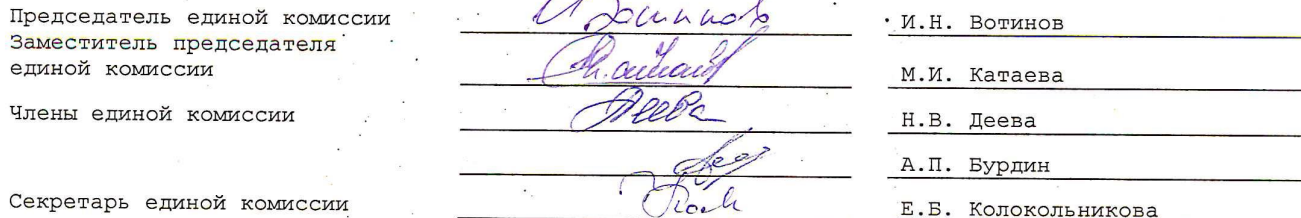 Председатель единой комиссии И.Н. Вотинов
Заместитель председателя
единой комиссии М.И. Катаева
Члены единой комиссии Деева Н.В. Деева
А.П. Бурдин
Секретарь единой комиссии Е.Б. Колокольникова